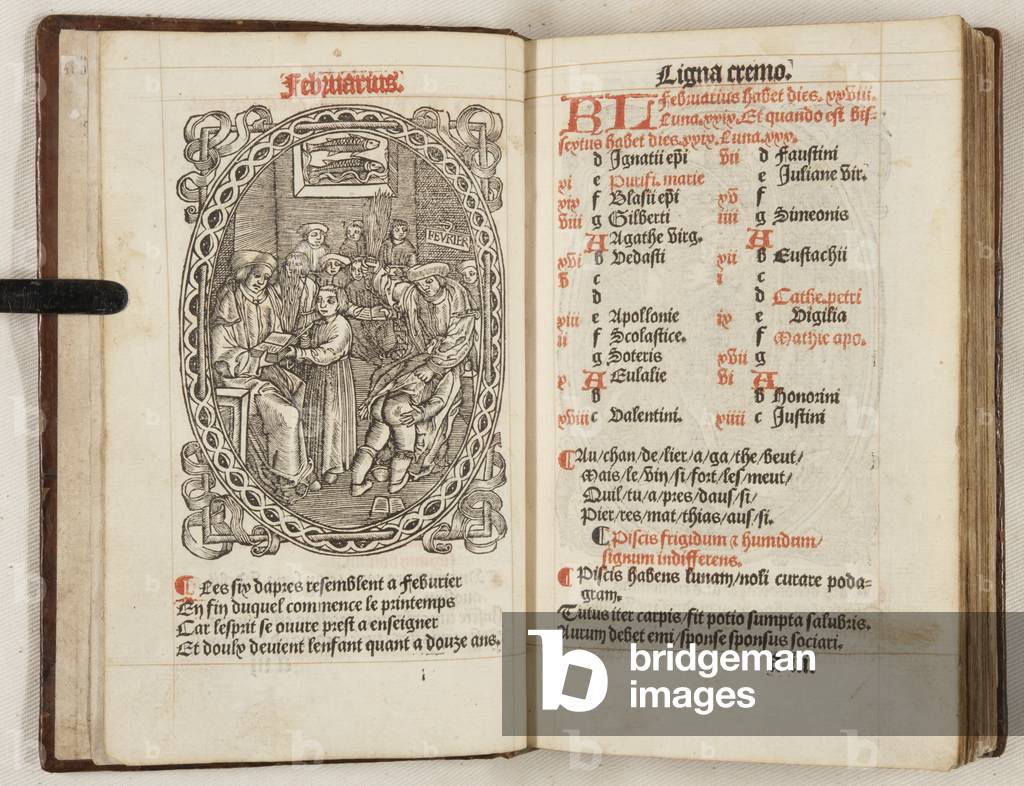 Februarius.
FEVRIER
Les six dapres resemblent a Feburier
En fin duquel commence le printemps
Car lesprit se ouvre prest a enseigner
Et doulx devient lenfant quant a douze ans.
Ligna cremo.
KL Februarius habet dies. xxviii.
Luna. xxix. Et quando est bis-
sextus habet dies. xxix. Luna. xxx.
d Ignatii ep̄i
xi e Purifi. marie
xix f Blasii ep̄i
viii g Gilberti
A Agathe virg.
xvi b Vedasti
v c
d
xiii e Apollonie
ii f Scolastice.
g Soteris
x A Eulalie
b
xviii c Valentini.
vii d Faustini
e Juliane vir.
xv f
iiii g Simeonis
A
xii b Eustachii
i c
d Cathe. petri
ix e Vigilia
f Mathie apo.
xvii g
vi A
b Honorini
xiiii c Justini
Au/chan/de/lier/a/ga/the/beut/
Mais/le/vin/si/fort/les/meut/
Quil/tu/a/pres/daus/si/
Pier/res/mat/thias/aus/si.
Piscis frigidum ⁊ humidum/
signum indifferens.
Piscis habens lunam/noli curare poda-
gram.
Tutus iter carpis/sit potio sumpta salubris.
Aurum debet emi/sponse sponsus sociari.
b bridgeman
images